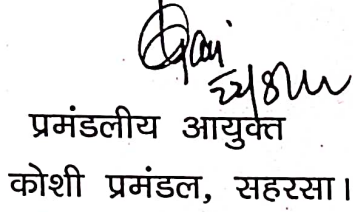 प्रमंडलीय आयुक्त
कोशी प्रमंडल, सहरसा।